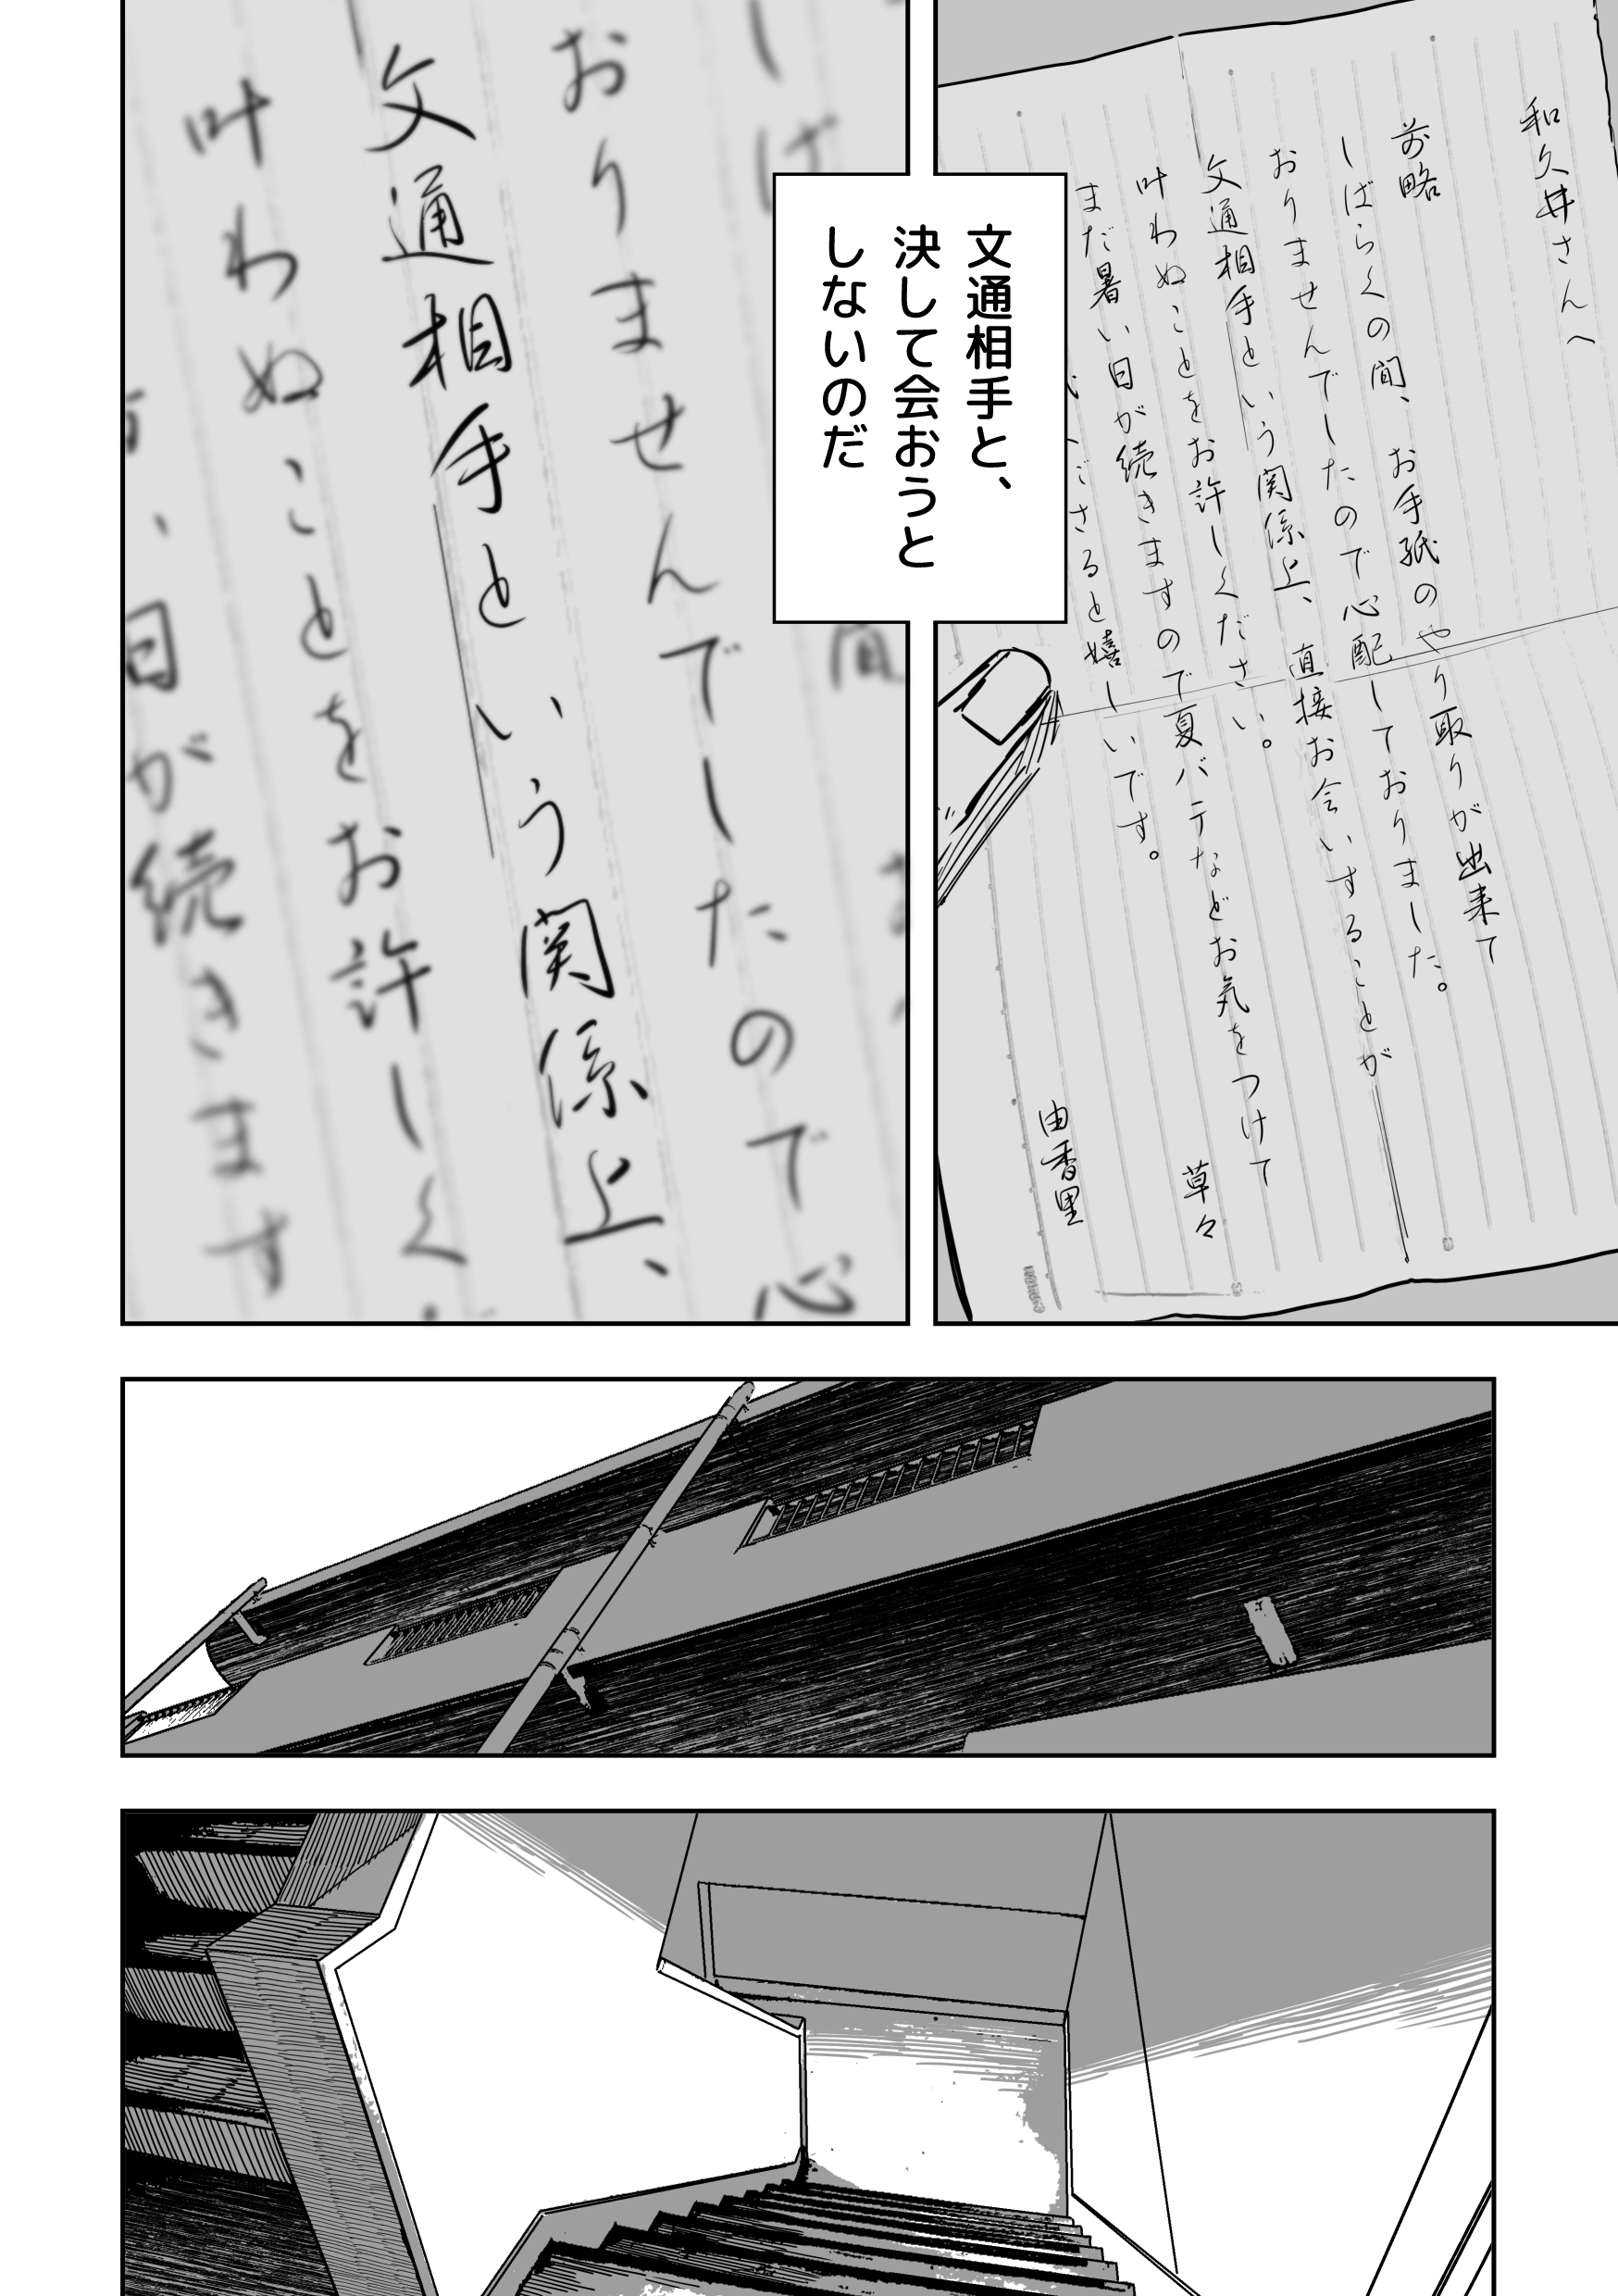 和久井さんへ
前略
しばらくの間、お手紙のやり取りが出来て
おりませんでしたので心配しておりました。
文通相手という関係上、直接お会いすることが
叶わぬことをお許しください。
まだ暑い日が続きますので夏バテなどお気をつけて
ださると嬉しいです。
草々
由香里
文通相手と、
決して会おうと
しないのだ
しば
間
おりませんでしたので心
文通相手という関係上、
叶わぬことをお許しく
日が続きます